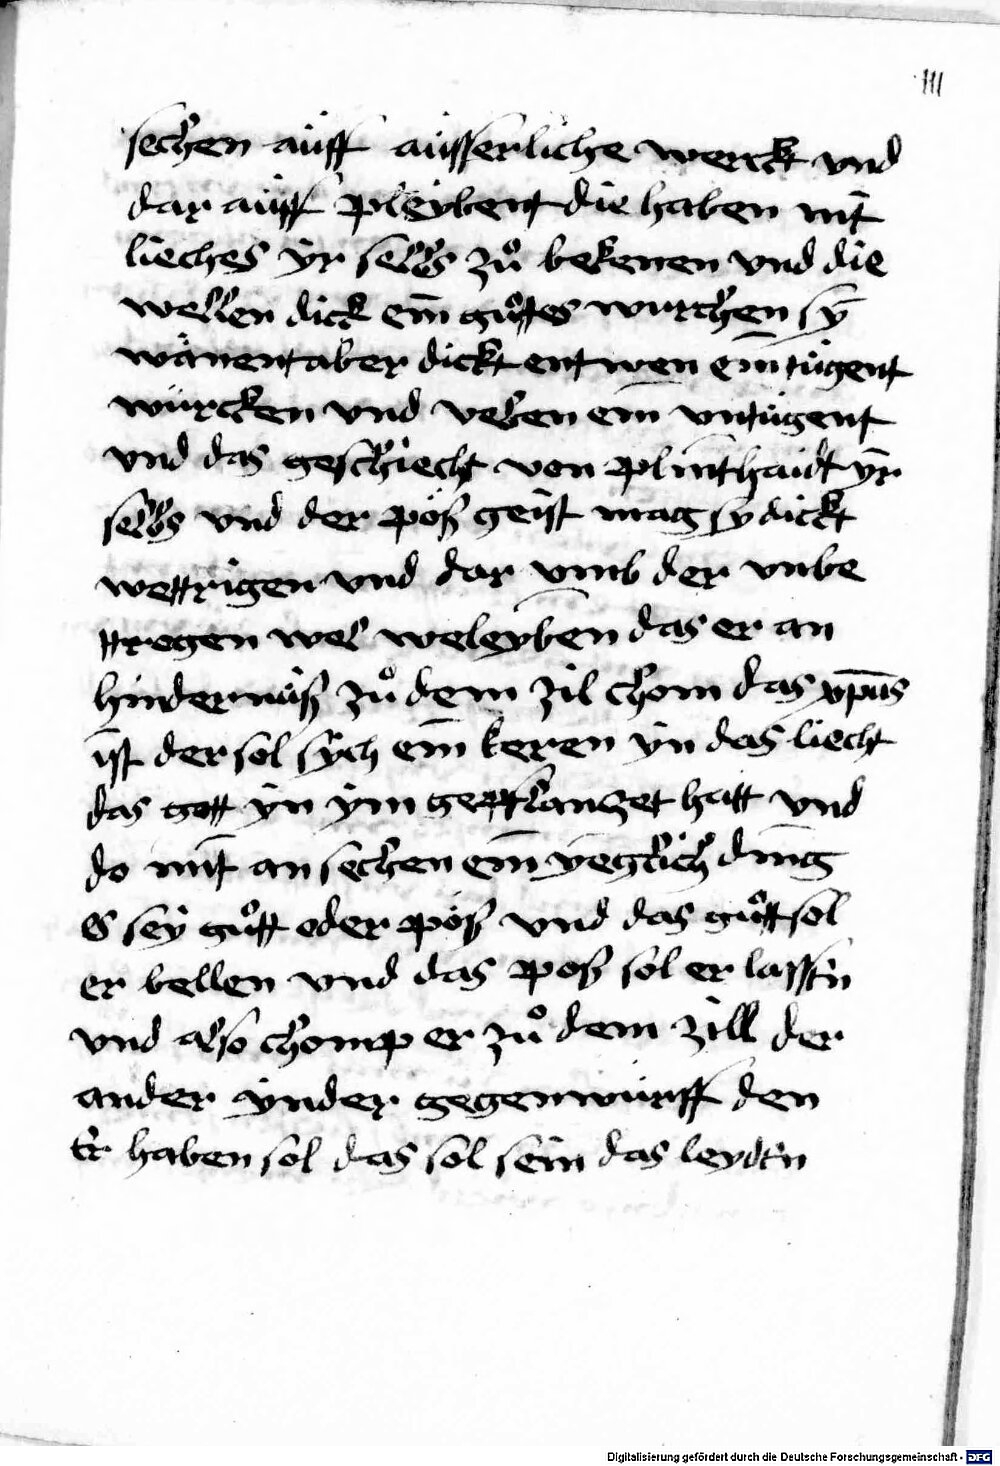 111
sechen auff ausserliche werck vnd
dar auff pleybent die haben nit
lieches yr selbs zů bekenen vnd die
wellen dick ein gůttes wurchen sy
wänent aber dickt ent wen ein tugent
würcken vnd veben ein vntugent
vnd das geschiecht von plinthaidt yr
selbs vnd der pöß geist mag sy dickt
wettrigen vnd dar vmb der vnbe
ttregen wel weleyben das er an
hindernuß zů dem zil chom das xp̄us
ist der sol sych ein keren yn das liecht
das gott yn ym gepflanzet hatt vnd
do mit an sechen ein yeglich ding
Es sey gůtt oder pöß vnd das gůtt sol
er bellen vnd das poß sol er lassen
vnd also chomp er zů dem zill der
ander ynder gegenwürff den
Er haben sol das sol sein das leyden
Digitalisierung gefördert durch die Deutsche Forschungsgemeinschaft - DFG